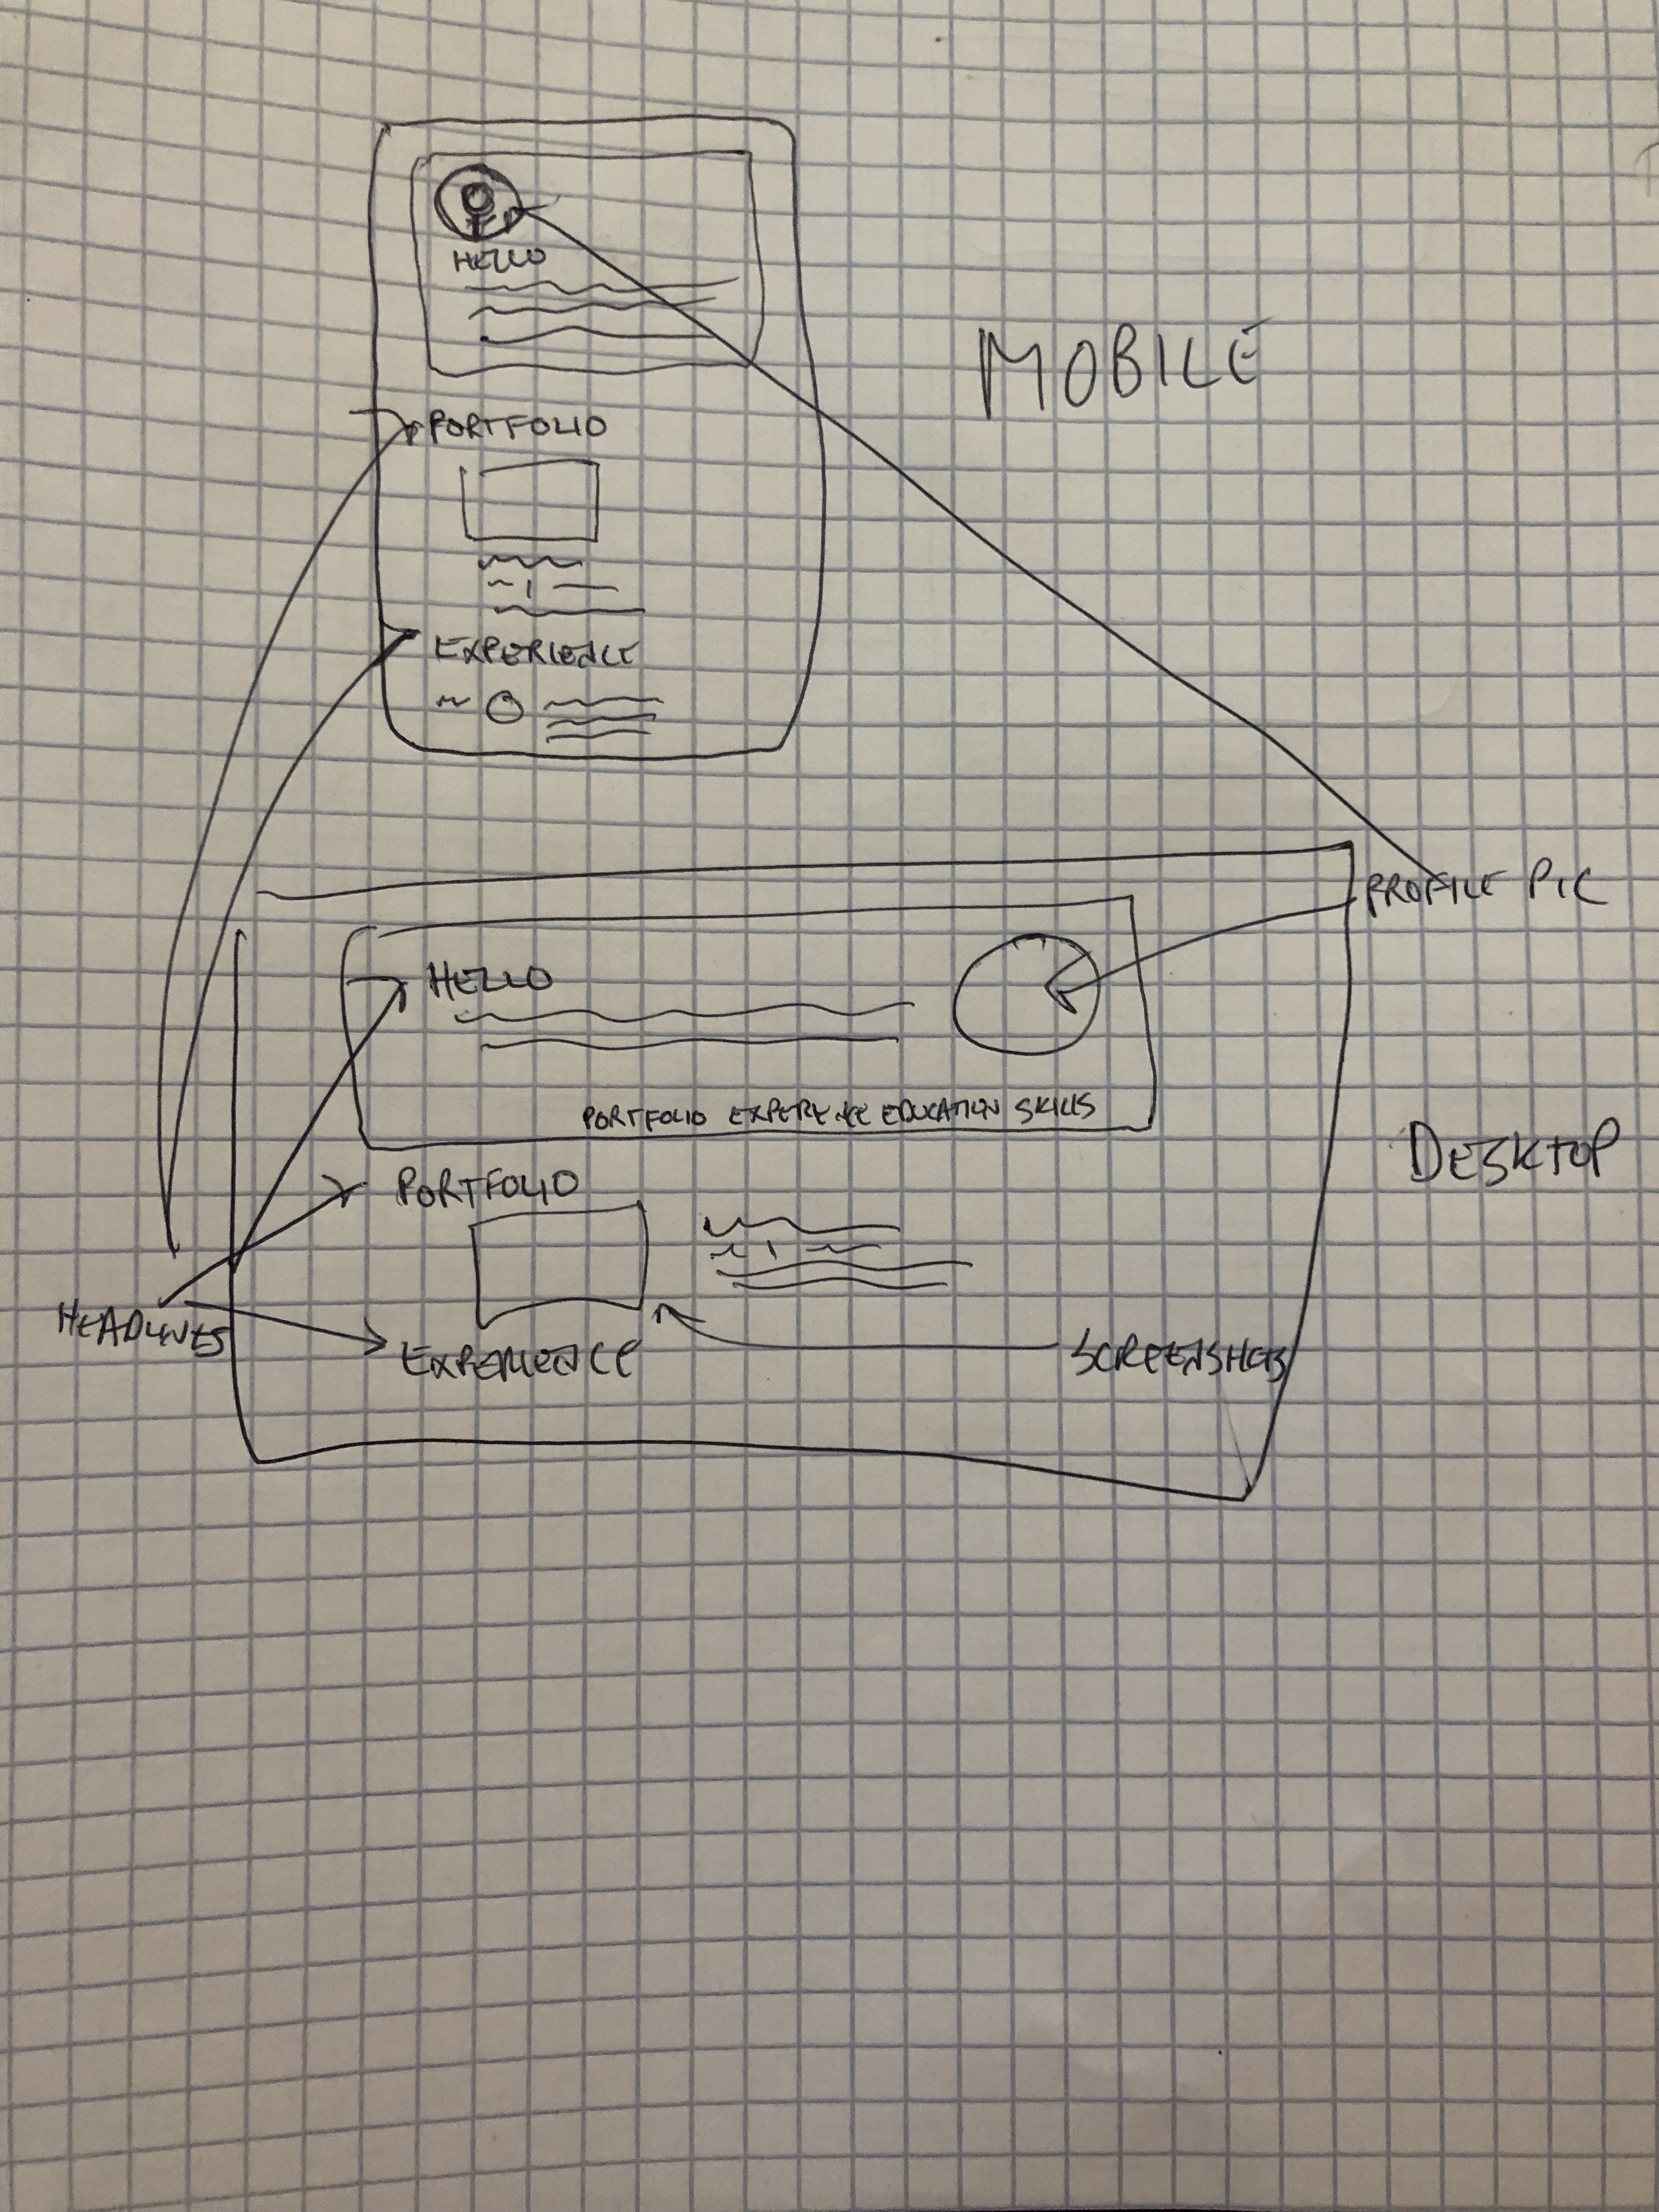 HELLO
MOBILE
PORTFOLIO
EXPERIENCE
PROFILE PIC
HELLO
PORTFOLIO EXPERIENCE EDUCATION SKILLS
DESKTOP
PORTFOLIO
HEADLINES
EXPERIENCE
SCREENSHOTS